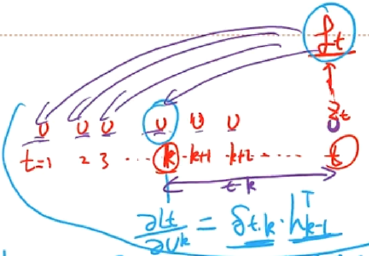 ℒt
zt
U U U U U U U
t=1 2 3 ... k k+1 k+2 ..... t
t-k
∂Lt/∂U^k = δt.k · h^T_{k-1}